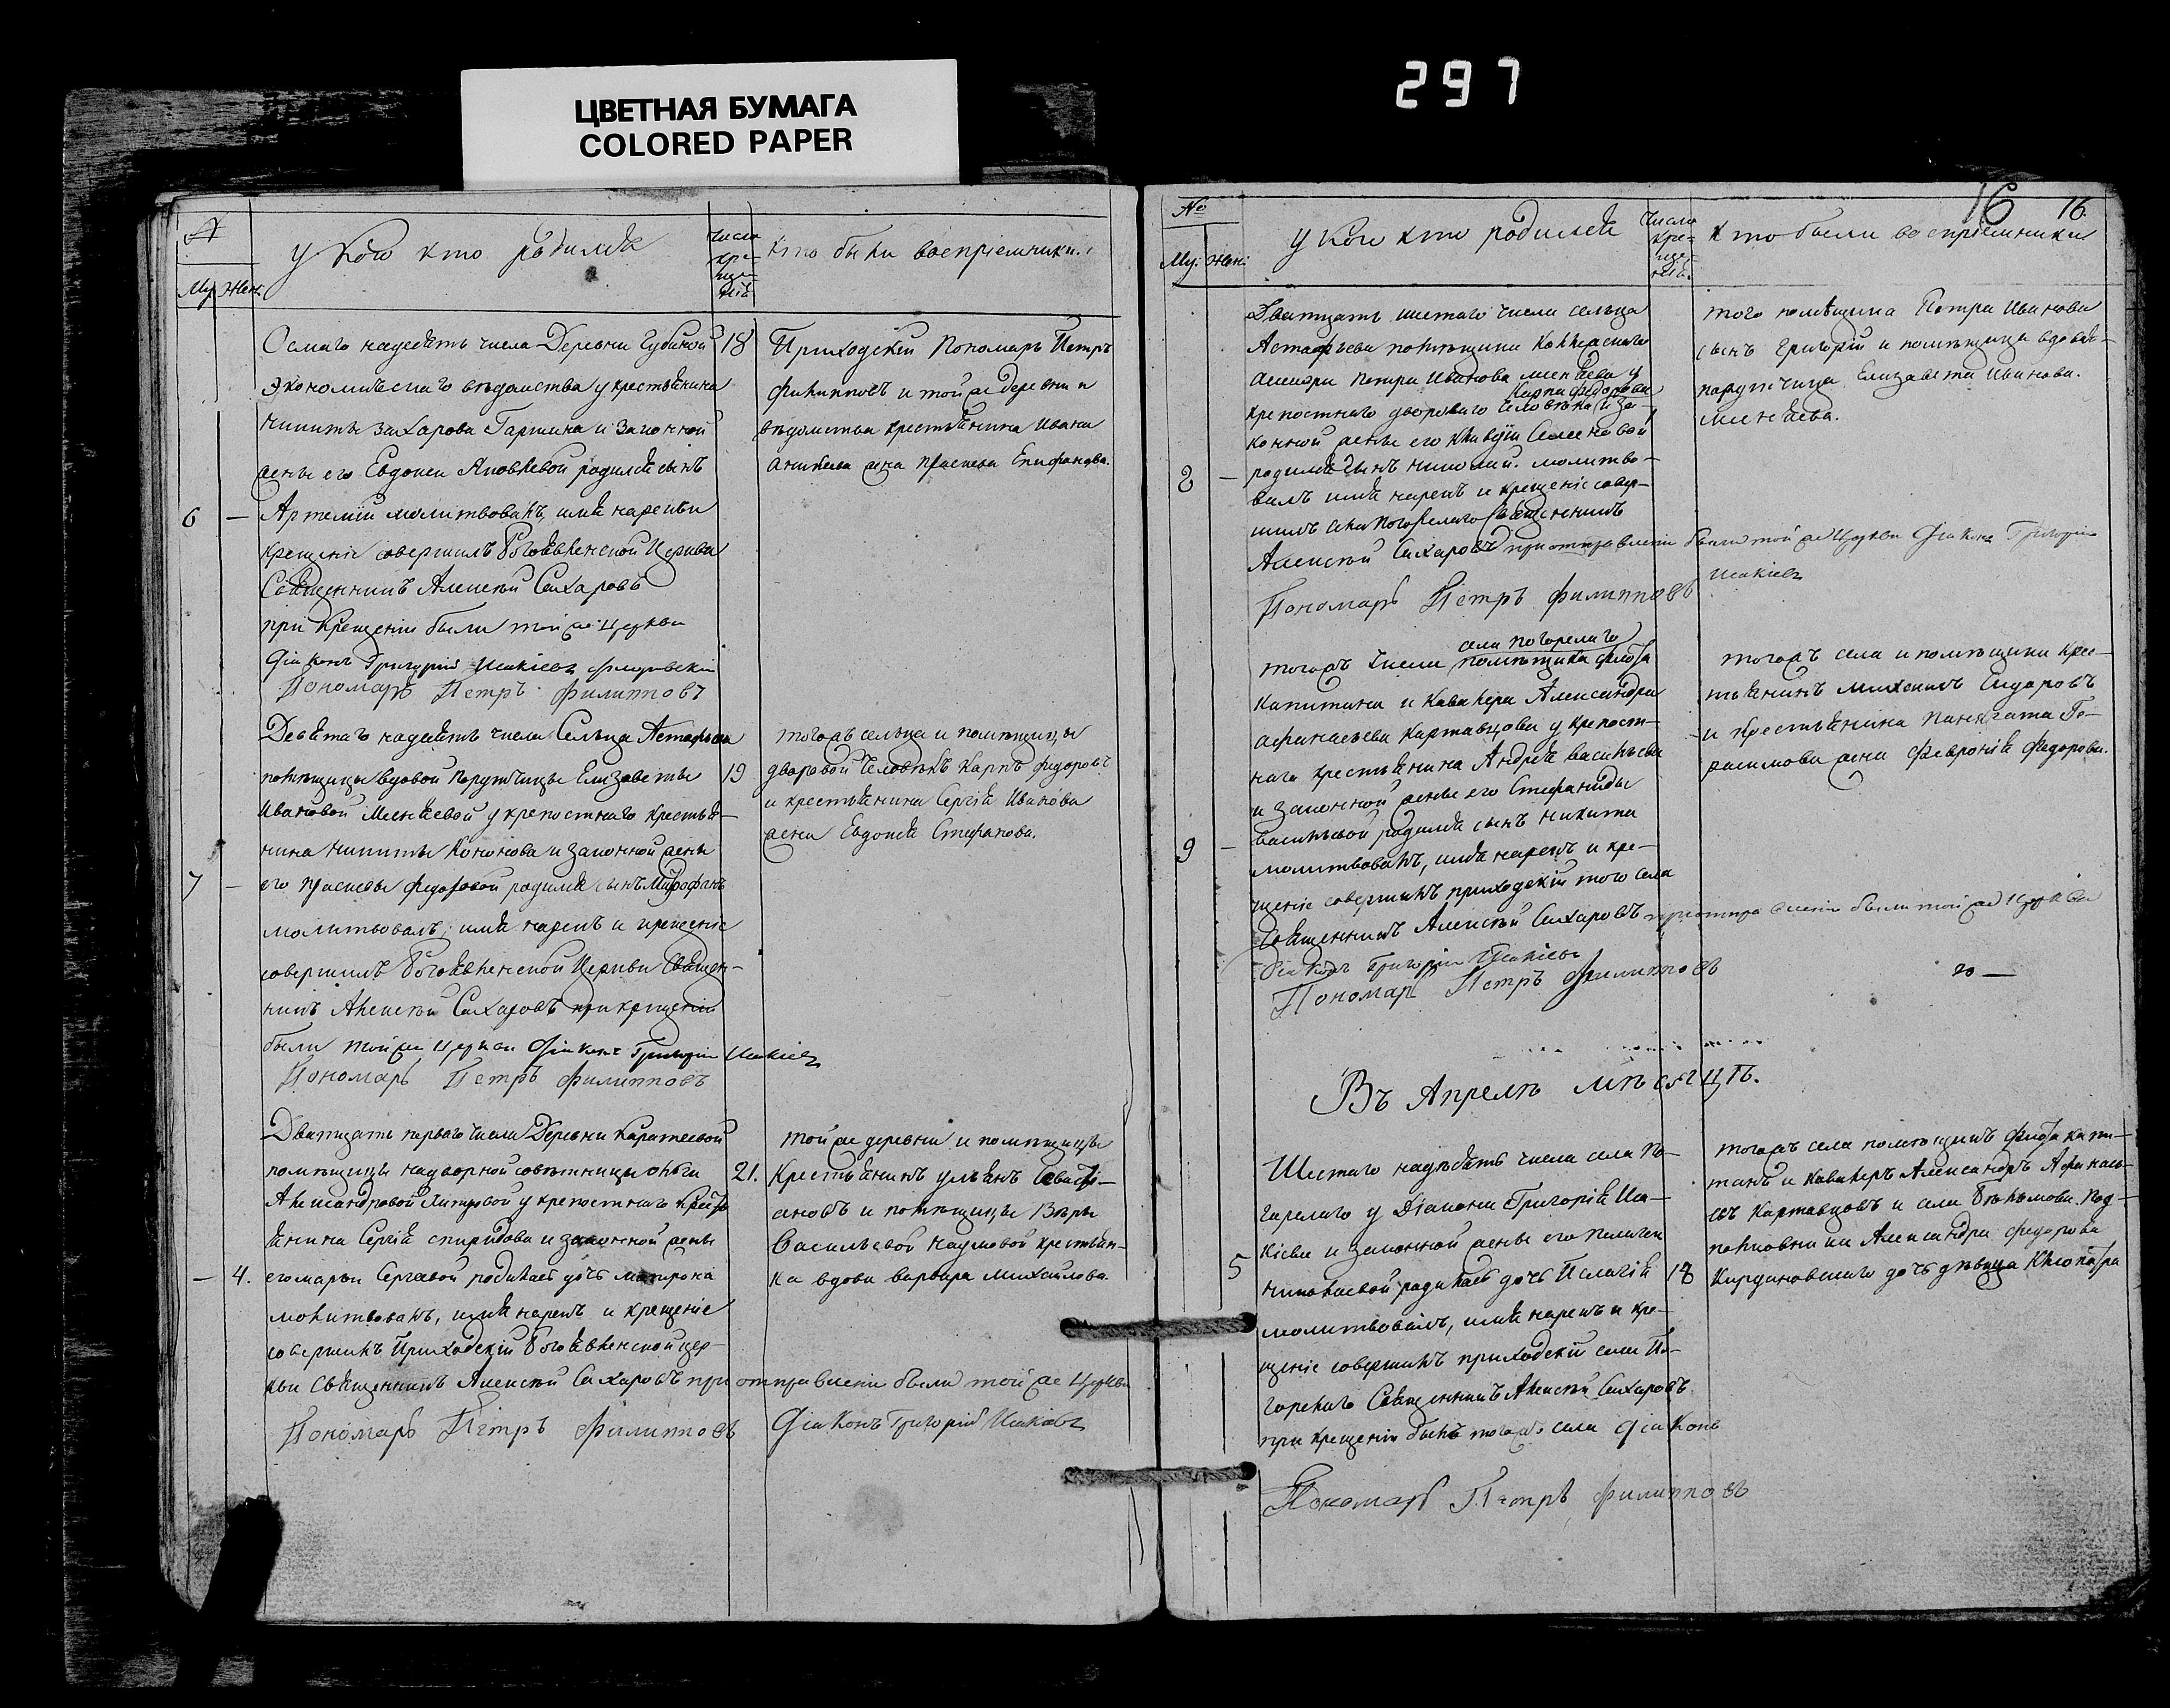 ЦВЕТНАЯ БУМАГА
COLORED PAPER
297
№
Му. Жен.
у Кого кто родился
Число
кре-
ще-
нія.
кто были воспріемники.
Осмаго надесять числа Деревни Губиной
экономическаго вѣдомства у крестьянина
Никиты Захарова Гаршина и законной
жены его Евдокеи Яковлевой родился сынъ
6 — Артемій молитвовалъ, имя нареклъ и
крещеніе совершилъ Богоявленской Церкви
Священникъ Алексѣй Сахаровъ
при крещеніи были той же церкви
Діаконъ Григорій Исакіевъ
Пономарь Петръ Филипповъ
18
Приходскій Пономарь Петръ
Филипповъ и той же деревни и
вѣдомства крестьянина Ивана
жена Епифанова.
Девятаго надесять числа Сельца Астафьева
помѣщицы вдовой Порутчицы Елизаветы
Ивановой Менжевой у крепостнаго крестья-
нина Никиты Кононова и законной жены
7 — его Прасковьи Федоровой родился сынъ Митрофанъ
молитвовалъ, имя нарекъ и крещеніе
совершилъ Богоявленской Церкви Священ-
никъ Алексѣй Сахаровъ при крещеніи
были той же церкви Діаконъ Григорій Исакіевъ
Пономарь Петръ Филипповъ
19
тогожъ сельца и помѣщицы
дворовой человѣкъ Карпъ Федоровъ
и крестьянина Сергѣя Иванова
жена Евдокея Стефанова.
Дватцать перваго числа Деревни Каратеевой
помѣщицы надворной совѣтницы Ольги
Александровой у крепостнаго крестья-
янина Сергѣя Спиридова и законной жены
— 4. его Марьи Сергеевой родилась дочь Матрона
молитвовалъ, имя нарекъ и крещеніе
совершилъ Приходскій Богоявленской цер-
кви Священникъ Алексѣй Сахаровъ при отправленіи были той же церкви
Пономарь Петръ Филипповъ Діаконъ Григорій Исакіевъ
21.
той же деревни и помѣщицы
Крестьянинъ Ульянъ Севасть-
яновъ и помѣщицы Вѣры
Васильевой Наумовой крестьян-
ка вдова Варвара Михайлова.
16 16.
№
Му. Жен.
у Кого кто родился
Число
кре-
ще-
нія.
кто были воспріемники
Дватцать шестаго числа сельца
Астафьева помѣщика Коллежскаго
Петра Иванова Менжева у
Карпа Федорова
крепостнаго двороваго человѣка и за-
конной жены его Семеновой
8 — родился сынъ Николай. молитво-
валъ имя нарекъ и крещеніе совер-
шилъ села Погорелаго Священникъ
Алексѣй Сахаровъ при отправленіи были той же Церкви Діаконъ Григорій
Исакіевъ
Пономарь Петръ Филипповъ
того помѣщика Петра Иванова
сынъ Григорій и помѣщица вдовая
парутчица Елизавета Иванова
Менжева.
села Погорелаго
тогожъ числа помѣщика флота
Капитана и Кавалера Александра
Афанасьева Картавцова у крепост-
наго крестьянина Андрея Васильева
и законной жены его Стефаниды
Васильевой родился сынъ Никита
9 — молитвовалъ, имя нарекъ и кре-
щеніе совершилъ приходскій того села
Священникъ Алексѣй Сахаровъ при отправленіи были той же церкви
Діаконъ Григорій Исакіевъ
Пономарь Петръ Филипповъ
тогожъ села и помѣщика крес-
тьянинъ Михаилъ Сидоровъ
и крестьянина Панкрата Ге-
расимова жена Февронія Федорова.
Въ Апрелѣ мѣсяцѣ.
Шестаго надесять числа села По-
гарелаго у Діакона Григорія Иса-
кіева и законной жены его Пелагеи
5 Николаевой родилась дочь Пелагія
молитвовалъ, имя нарекъ и кре-
щеніе совершилъ приходскій села По-
горелаго Священникъ Алексѣй Сахаровъ
при крещеніи былъ тогожъ села Діаконъ
Пономарь Петръ Филипповъ
18
тогожъ села помѣщикъ флота капи-
танъ и Кавалеръ Александръ Афанась-
евъ Картавцовъ и села Под-
полковника Александра Федорова
дочь дѣвица Клеопатра